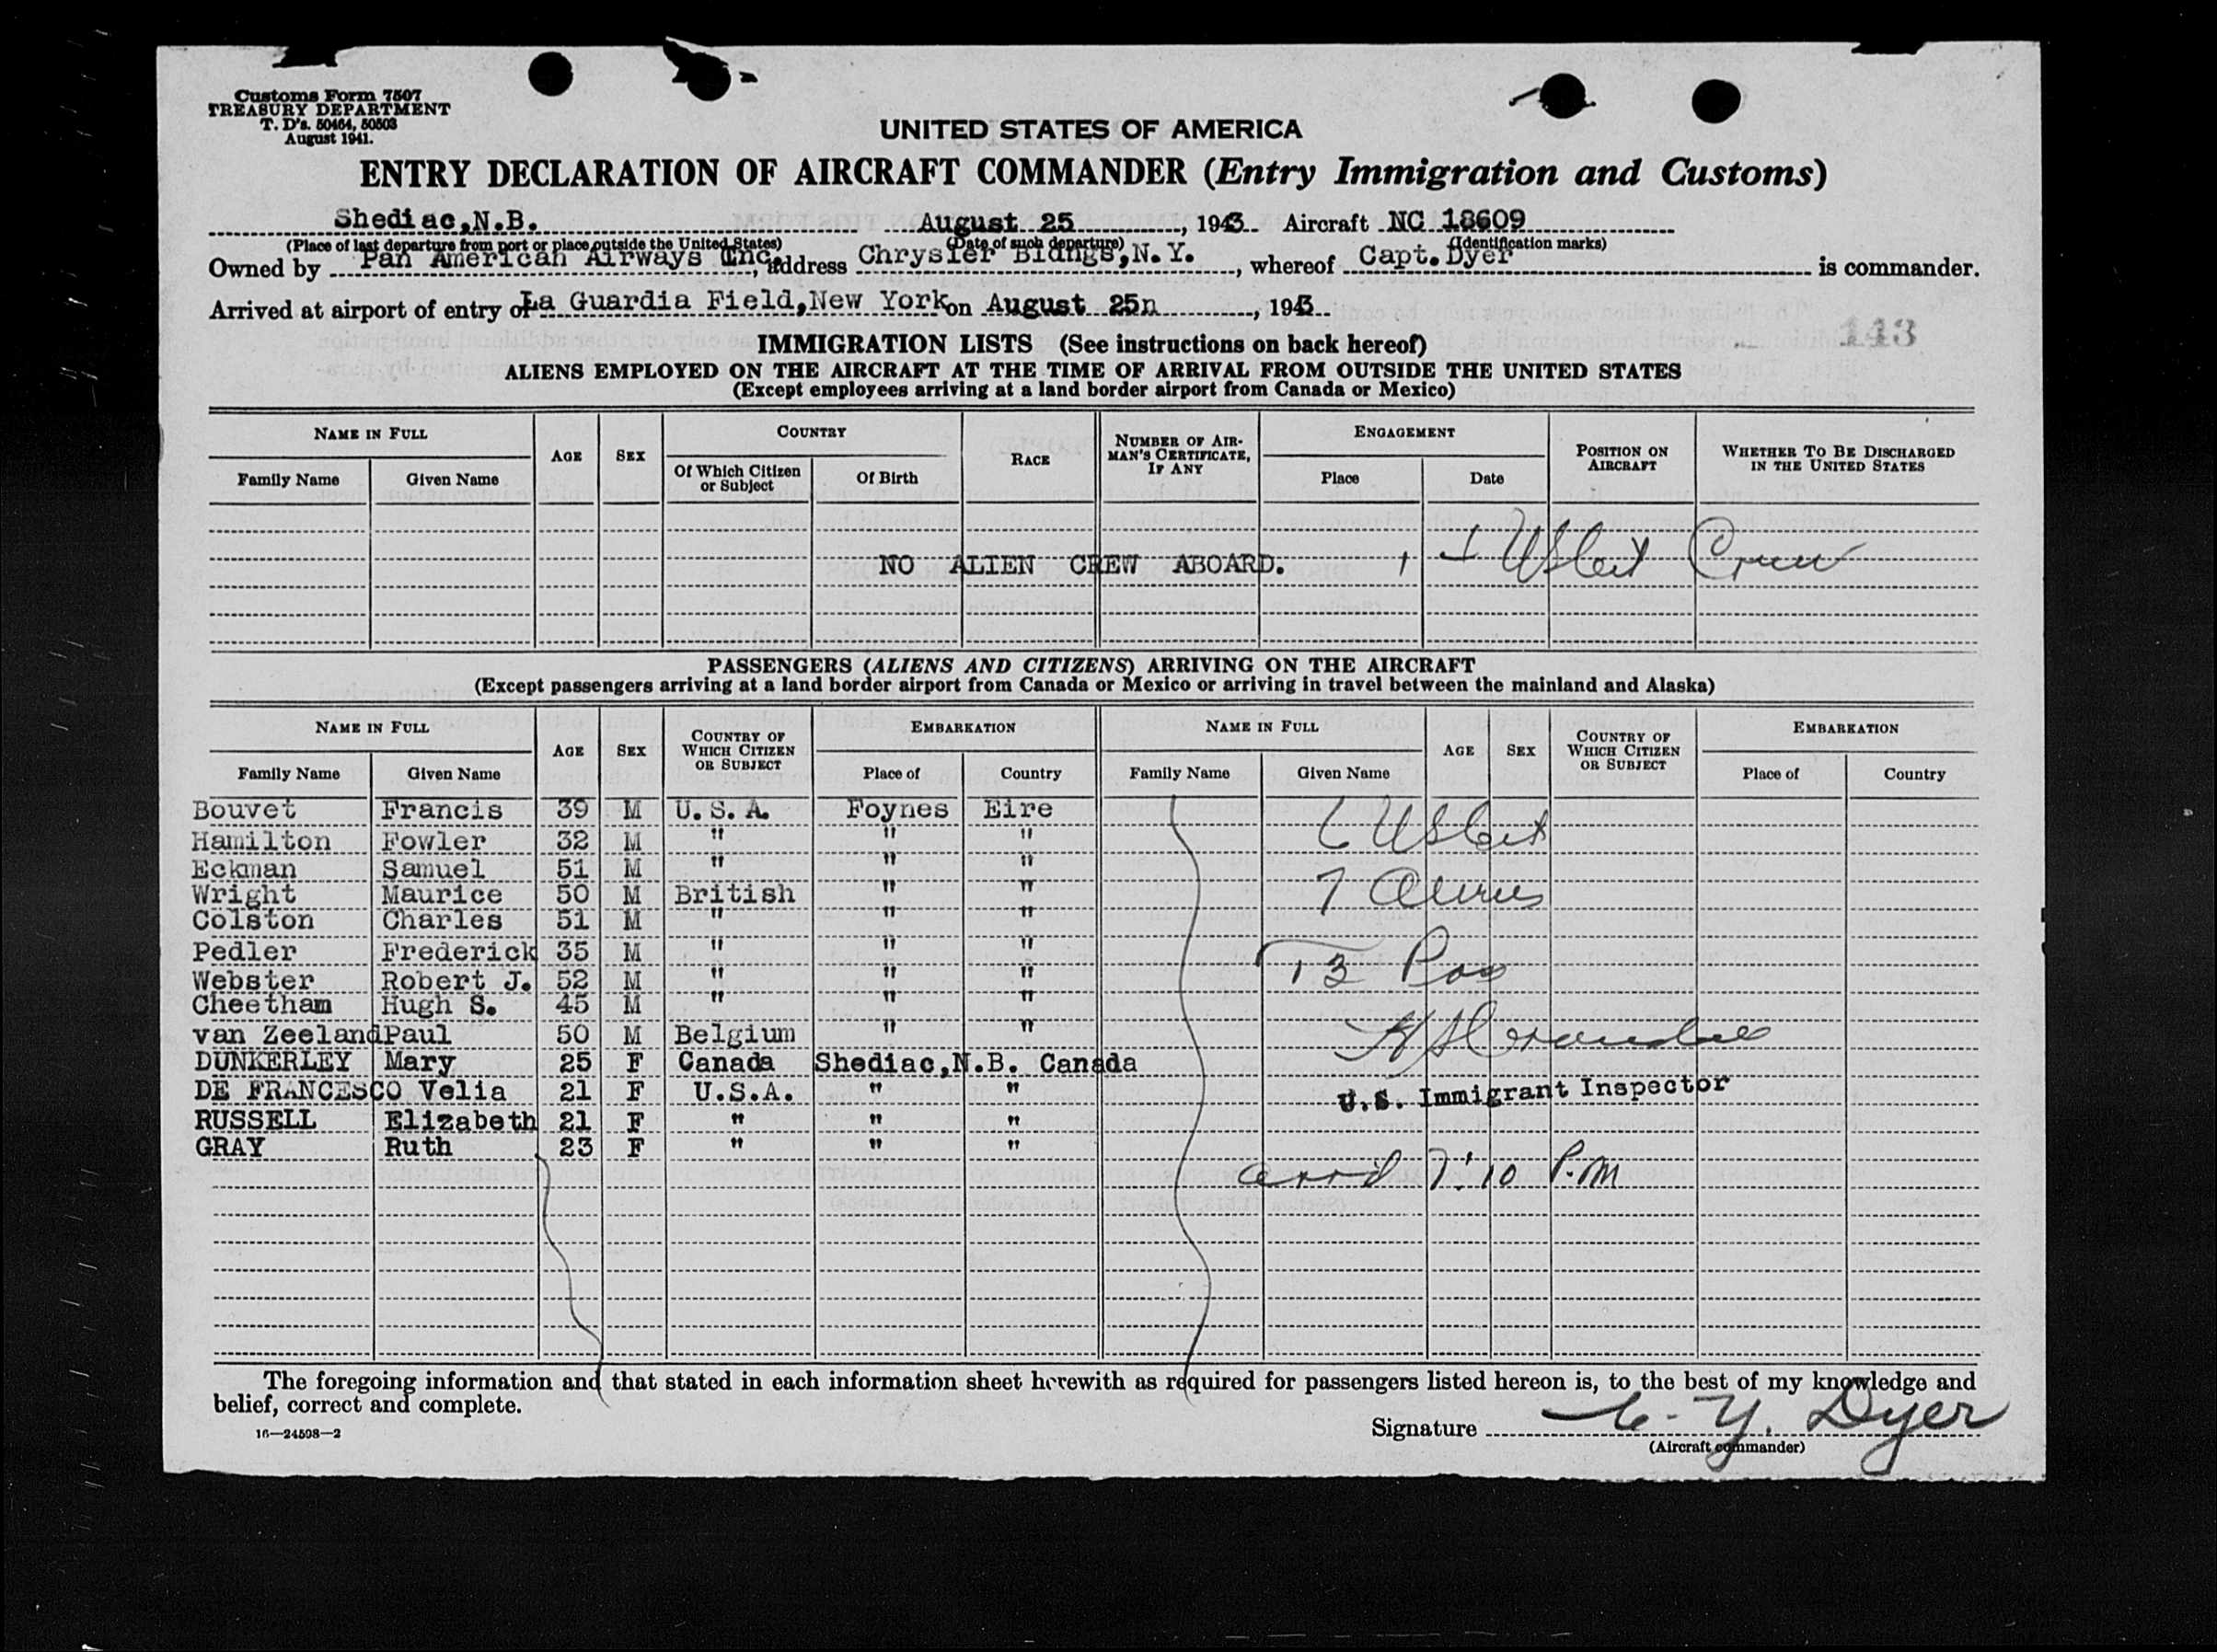 Customs Form 7507
TREASURY DEPARTMENT
T. D's. 50464, 50503
August 1941.
UNITED STATES OF AMERICA
ENTRY DECLARATION OF AIRCRAFT COMMANDER (Entry Immigration and Customs)
Shediac,N.B. August 25, 1943 Aircraft NC 18609
(Place of last departure from port or place outside the United States) (Date of such departure) (Identification marks)
Owned by Pan American Airways Inc., address Chrysler Bldngs,N.Y., whereof Capt. Dyer is commander.
Arrived at airport of entry of La Guardia Field,New York on August 25n, 1943
143
IMMIGRATION LISTS (See instructions on back hereof)
ALIENS EMPLOYED ON THE AIRCRAFT AT THE TIME OF ARRIVAL FROM OUTSIDE THE UNITED STATES
(Except employees arriving at a land border airport from Canada or Mexico)
NAME IN FULL AGE SEX COUNTRY RACE NUMBER OF AIRMAN'S CERTIFICATE, IF ANY ENGAGEMENT POSITION ON AIRCRAFT WHETHER TO BE DISCHARGED IN THE UNITED STATES
Family Name Given Name Of Which Citizen or Subject Of Birth Place Date
NO ALIEN CREW ABOARD. Crew
PASSENGERS (ALIENS AND CITIZENS) ARRIVING ON THE AIRCRAFT
(Except passengers arriving at a land border airport from Canada or Mexico or arriving in travel between the mainland and Alaska)
NAME IN FULL AGE SEX COUNTRY OF WHICH CITIZEN OR SUBJECT EMBARKATION NAME IN FULL AGE SEX COUNTRY OF WHICH CITIZEN OR SUBJECT EMBARKATION
Family Name Given Name Place of Country Family Name Given Name Place of Country
Bouvet Francis 39 M U.S.A. Foynes Eire
Hamilton Fowler 32 M " " "
Eckman Samuel 51 M " " "
Wright Maurice 50 M British " "
Colston Charles 51 M " " "
Pedler Frederick 35 M " " "
Webster Robert J. 52 M " " "
Cheetham Hugh S. 45 M " " "
van Zeeland Paul 50 M Belgium " "
DUNKERLEY Mary 25 F Canada Shediac,N.B. Canada
DE FRANCESCO Velia 21 F U.S.A. " "
RUSSELL Elizabeth 21 F " " "
GRAY Ruth 23 F " " "
6 US Cit
7 Aliens
13 Pas
U.S. Immigrant Inspector
arrd 7:10 P.M
The foregoing information and that stated in each information sheet herewith as required for passengers listed hereon is, to the best of my knowledge and
belief, correct and complete.
16—24598—2
Signature C. Y. Dyer
(Aircraft commander)